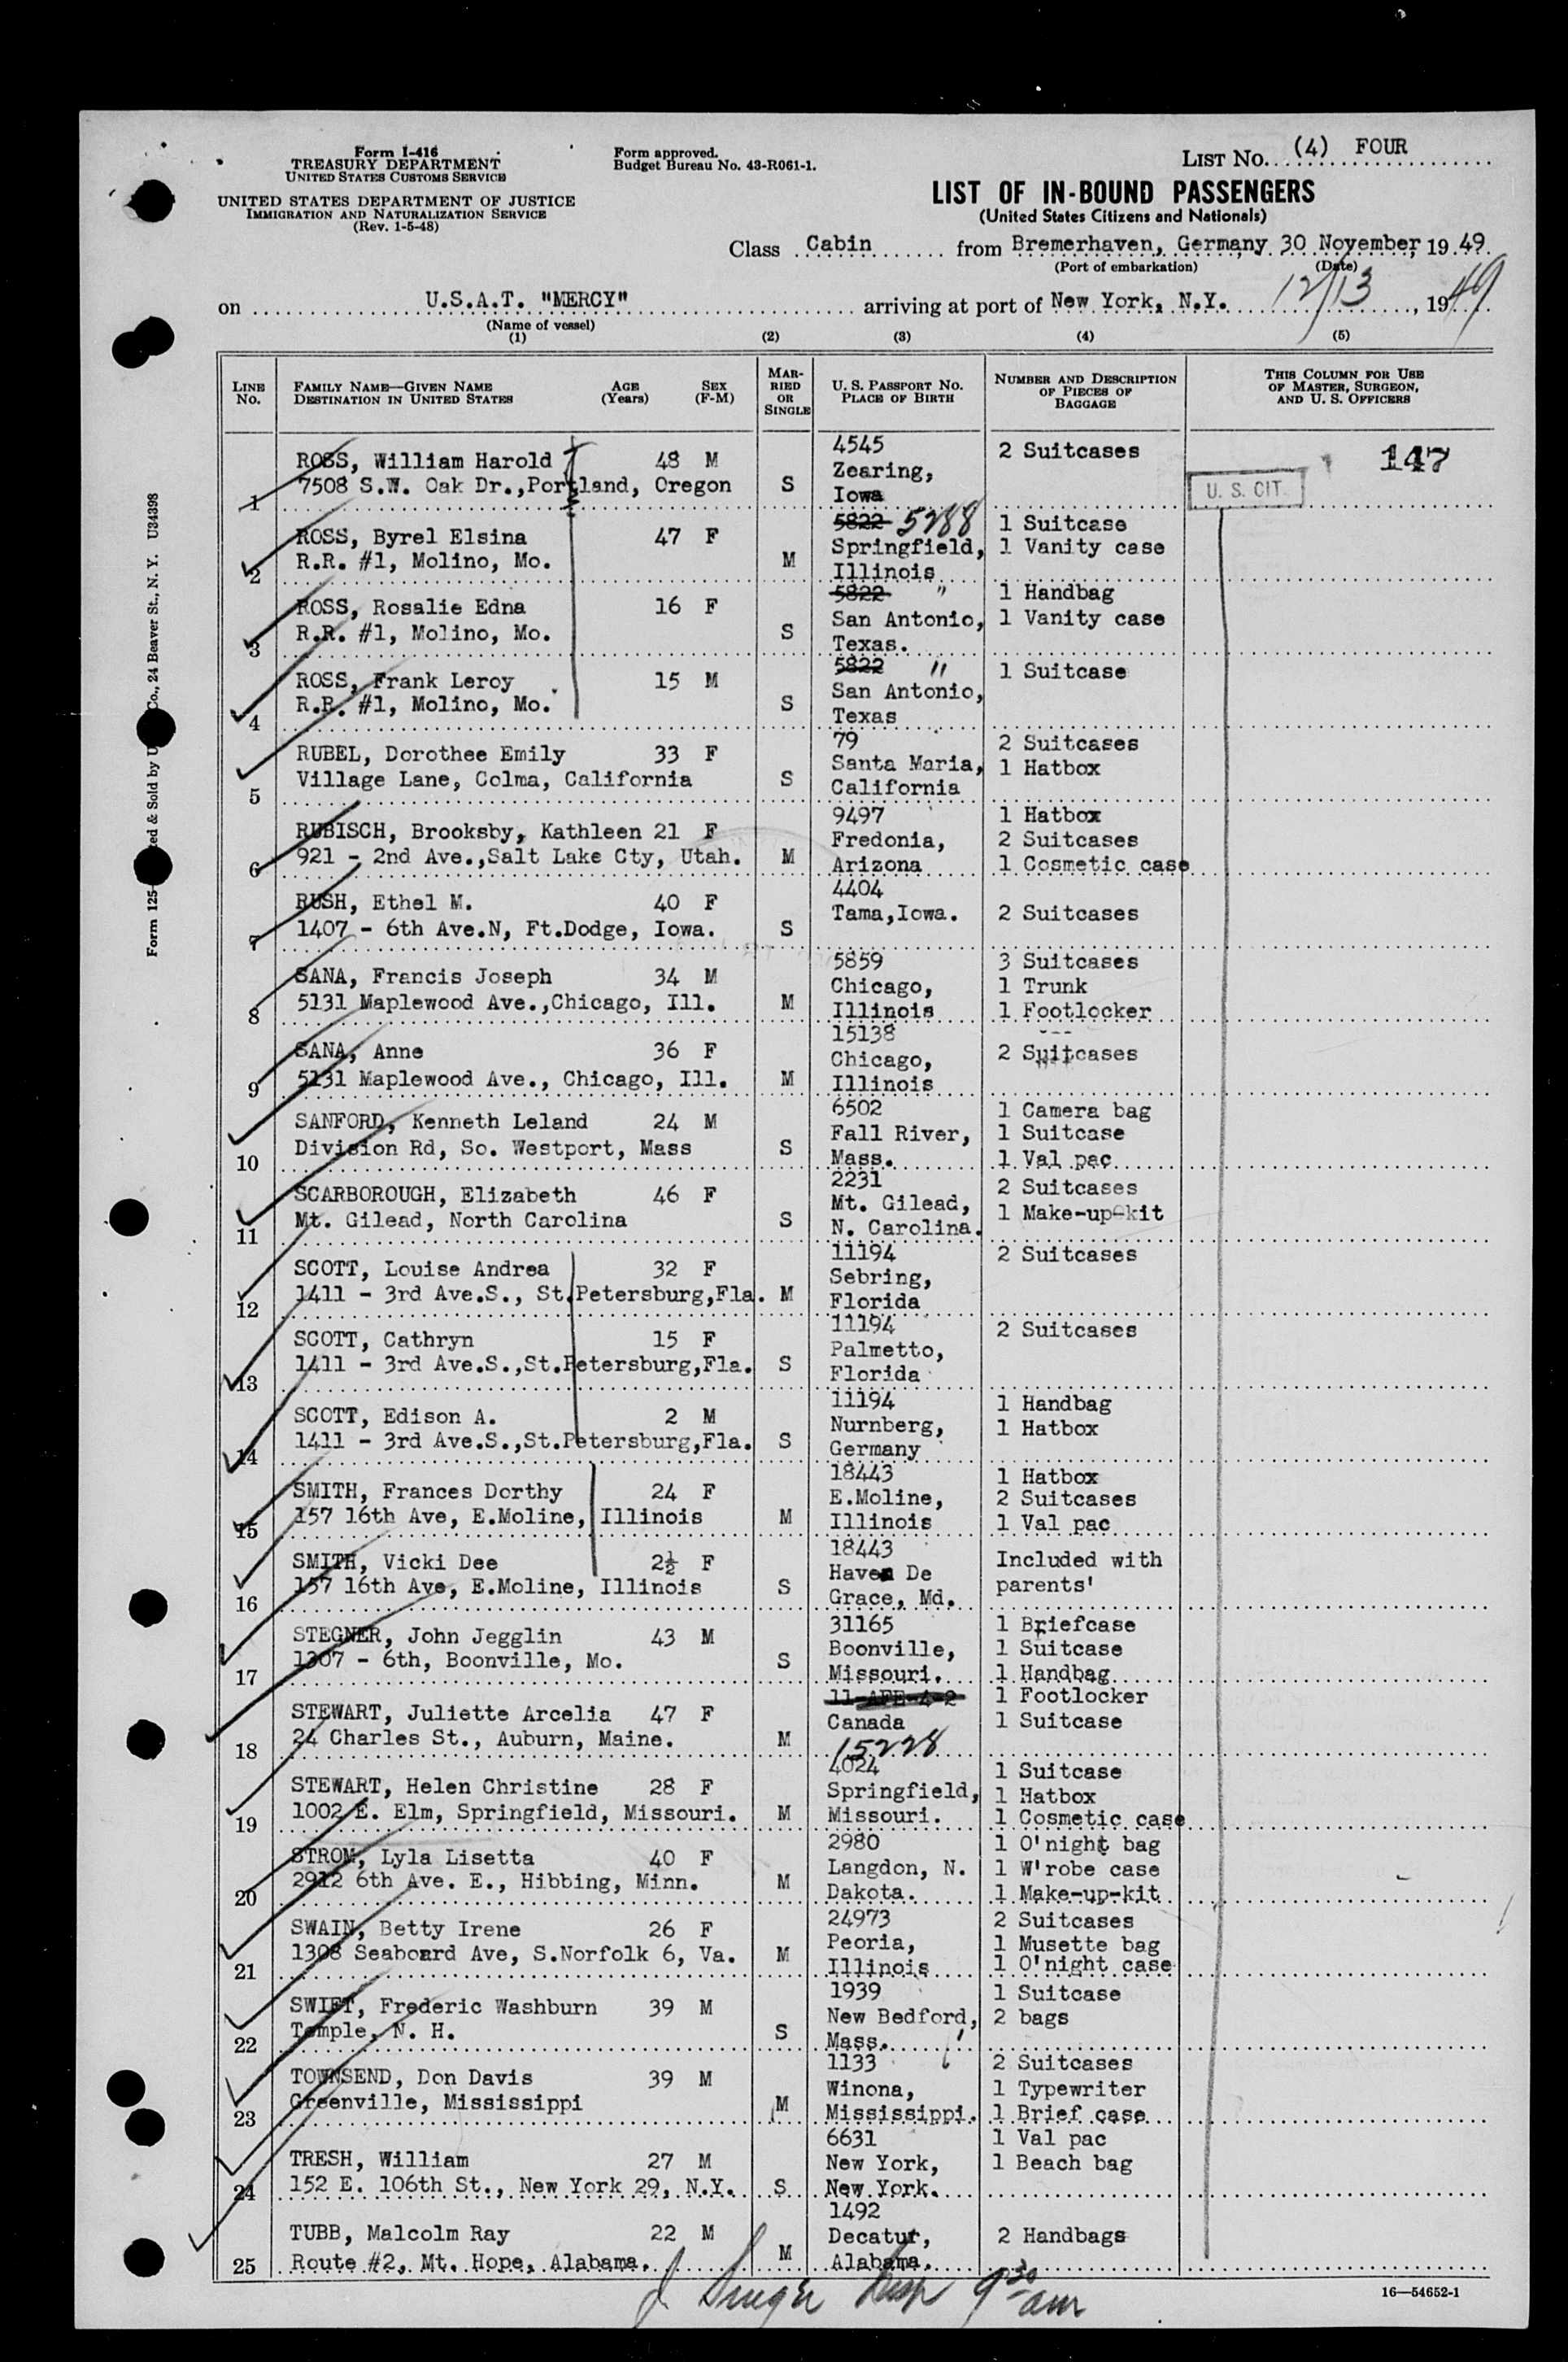 Form I-416
TREASURY DEPARTMENT
UNITED STATES CUSTOMS SERVICE
UNITED STATES DEPARTMENT OF JUSTICE
IMMIGRATION AND NATURALIZATION SERVICE
(Rev. 1-5-48)
Form approved.
Budget Bureau No. 43-R061-1.
LIST No. (4) FOUR
LIST OF IN-BOUND PASSENGERS
(United States Citizens and Nationals)
Class Cabin from Bremerhaven, Germany 30 November, 19 49
(Port of embarkation) (Date)
on U.S.A.T. "MERCY" arriving at port of New York, N.Y. 12/13, 1949
(Name of vessel)
(1) (2) (3) (4) (5)
LINE No.
FAMILY NAME—GIVEN NAME
DESTINATION IN UNITED STATES
AGE (Years)
SEX (F-M)
MARRIED OR SINGLE
U. S. PASSPORT No.
PLACE OF BIRTH
NUMBER AND DESCRIPTION OF PIECES OF BAGGAGE
THIS COLUMN FOR USE OF MASTER, SURGEON, AND U. S. OFFICERS
147
U. S. CIT.
1 ROSS, William Harold 48 M
7508 S.W. Oak Dr.,Portland, Oregon S
4545
Zearing,
Iowa
2 Suitcases
2 ROSS, Byrel Elsina 47 F
R.R. #1, Molino, Mo. M
5822 5288
Springfield,
Illinois
1 Suitcase
1 Vanity case
3 ROSS, Rosalie Edna 16 F
R.R. #1, Molino, Mo. S
5822 "
San Antonio,
Texas.
1 Handbag
1 Vanity case
4 ROSS, Frank Leroy 15 M
R.R. #1, Molino, Mo. S
5822 "
San Antonio,
Texas
1 Suitcase
5 RUBEL, Dorothee Emily 33 F
Village Lane, Colma, California S
79
Santa Maria,
California
2 Suitcases
1 Hatbox
6 RUBISCH, Brooksby, Kathleen 21 F
921 - 2nd Ave.,Salt Lake Cty, Utah. M
9497
Fredonia,
Arizona
1 Hatbox
2 Suitcases
1 Cosmetic case
7 RUSH, Ethel M. 40 F
1407 - 6th Ave.N, Ft.Dodge, Iowa. S
4404
Tama,Iowa.
2 Suitcases
8 SANA, Francis Joseph 34 M
5131 Maplewood Ave.,Chicago, Ill. M
5859
Chicago,
Illinois
3 Suitcases
1 Trunk
1 Footlocker
9 SANA, Anne 36 F
5131 Maplewood Ave., Chicago, Ill. M
15138
Chicago,
Illinois
---
2 Suitcases
10 SANFORD, Kenneth Leland 24 M
Division Rd, So. Westport, Mass S
6502
Fall River,
Mass.
1 Camera bag
1 Suitcase
1 Val pac
11 SCARBOROUGH, Elizabeth 46 F
Mt. Gilead, North Carolina S
2231
Mt. Gilead,
N. Carolina.
2 Suitcases
1 Make-up-kit
12 SCOTT, Louise Andrea 32 F
1411 - 3rd Ave.S., St.Petersburg,Fla. M
11194
Sebring,
Florida
2 Suitcases
13 SCOTT, Cathryn 15 F
1411 - 3rd Ave.S.,St.Petersburg,Fla. S
11194
Palmetto,
Florida
2 Suitcases
14 SCOTT, Edison A. 2 M
1411 - 3rd Ave.S.,St.Petersburg,Fla. S
11194
Nurnberg,
Germany
1 Handbag
1 Hatbox
15 SMITH, Frances Dorthy 24 F
157 16th Ave, E.Moline, Illinois M
18443
E.Moline,
Illinois
1 Hatbox
2 Suitcases
1 Val pac
16 SMITH, Vicki Dee 2½ F
157 16th Ave, E.Moline, Illinois S
18443
Haven De
Grace, Md.
Included with
parents'
17 STEGNER, John Jegglin 43 M
1307 - 6th, Boonville, Mo. S
31165
Boonville,
Missouri.
1 Briefcase
1 Suitcase
1 Handbag
18 STEWART, Juliette Arcelia 47 F
24 Charles St., Auburn, Maine. M
11-AFE-4-2
Canada
15228
1 Footlocker
1 Suitcase
19 STEWART, Helen Christine 28 F
1002 E. Elm, Springfield, Missouri. M
4024
Springfield,
Missouri.
1 Suitcase
1 Hatbox
1 Cosmetic case
20 STROM, Lyla Lisetta 40 F
2912 6th Ave. E., Hibbing, Minn. M
2980
Langdon, N.
Dakota.
1 O'night bag
1 W'robe case
1 Make-up-kit
21 SWAIN, Betty Irene 26 F
1308 Seaboard Ave, S.Norfolk 6, Va. M
24973
Peoria,
Illinois
2 Suitcases
1 Musette bag
1 O'night case
22 SWIFT, Frederic Washburn 39 M
Temple, N. H. S
1939
New Bedford,
Mass.
1 Suitcase
2 bags
23 TOWNSEND, Don Davis 39 M
Greenville, Mississippi M
1133
Winona,
Mississippi.
2 Suitcases
1 Typewriter
1 Brief case
24 TRESH, William 27 M
152 E. 106th St., New York 29, N.Y. S
6631
New York,
New York.
1 Val pac
1 Beach bag
25 TUBB, Malcolm Ray 22 M
Route #2, Mt. Hope, Alabama. M
1492
Decatur,
Alabama.
2 Handbags
9 30 am
16—54652-1
Form 125
ed & Sold by U
Co., 24 Beaver St., N. Y. U34398